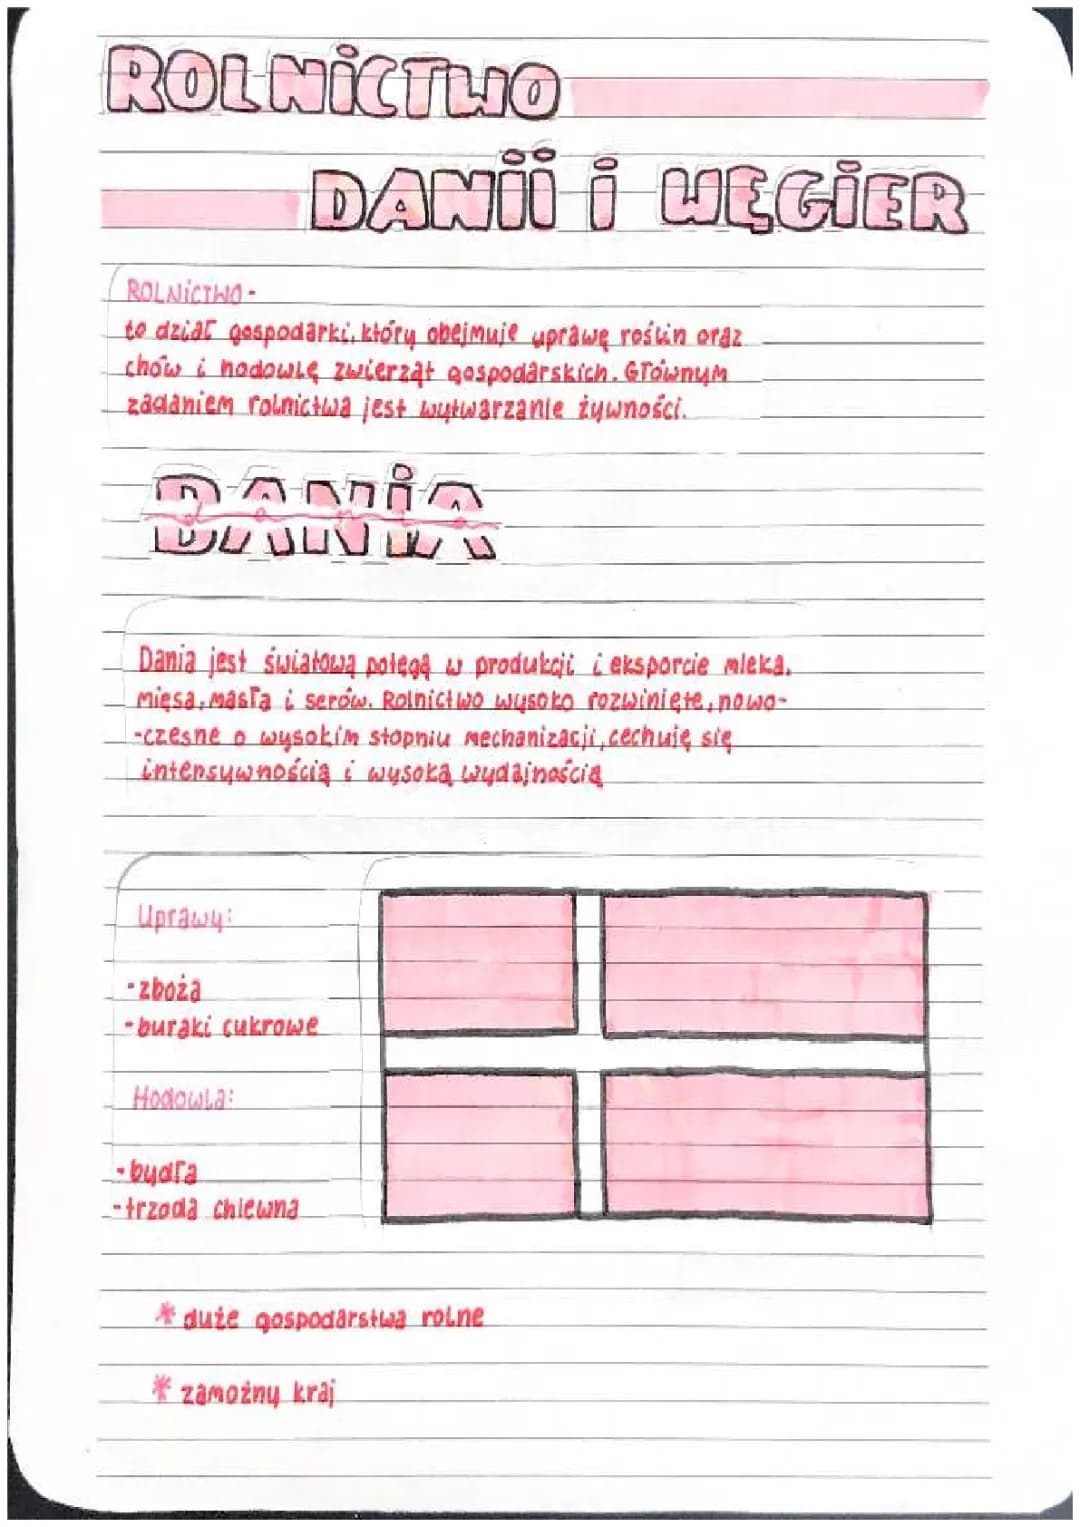 ROLNiCTWO
DANii i WĘGiER
ROLNiCTWO -
to dział gospodarki, który obejmuje uprawę roślin oraz
chów i hodowlę zwierząt gospodarskich. Głównym
zadaniem rolnictwa jest wytwarzanie żywności.
DANiA
dania
Dania jest światową potęgą w produkcji i eksporcie mleka,
mięsa, masła i serów. Rolnictwo wysoko rozwinięte, nowo-
-czesne o wysokim stopniu mechanizacji, cechuję się
intensywnością i wysoką wydajnością
Uprawy:
- zboża
- buraki cukrowe
Hodowla:
- bydła
- trzoda chlewna
* duże gospodarstwa rolne
* zamożny kraj